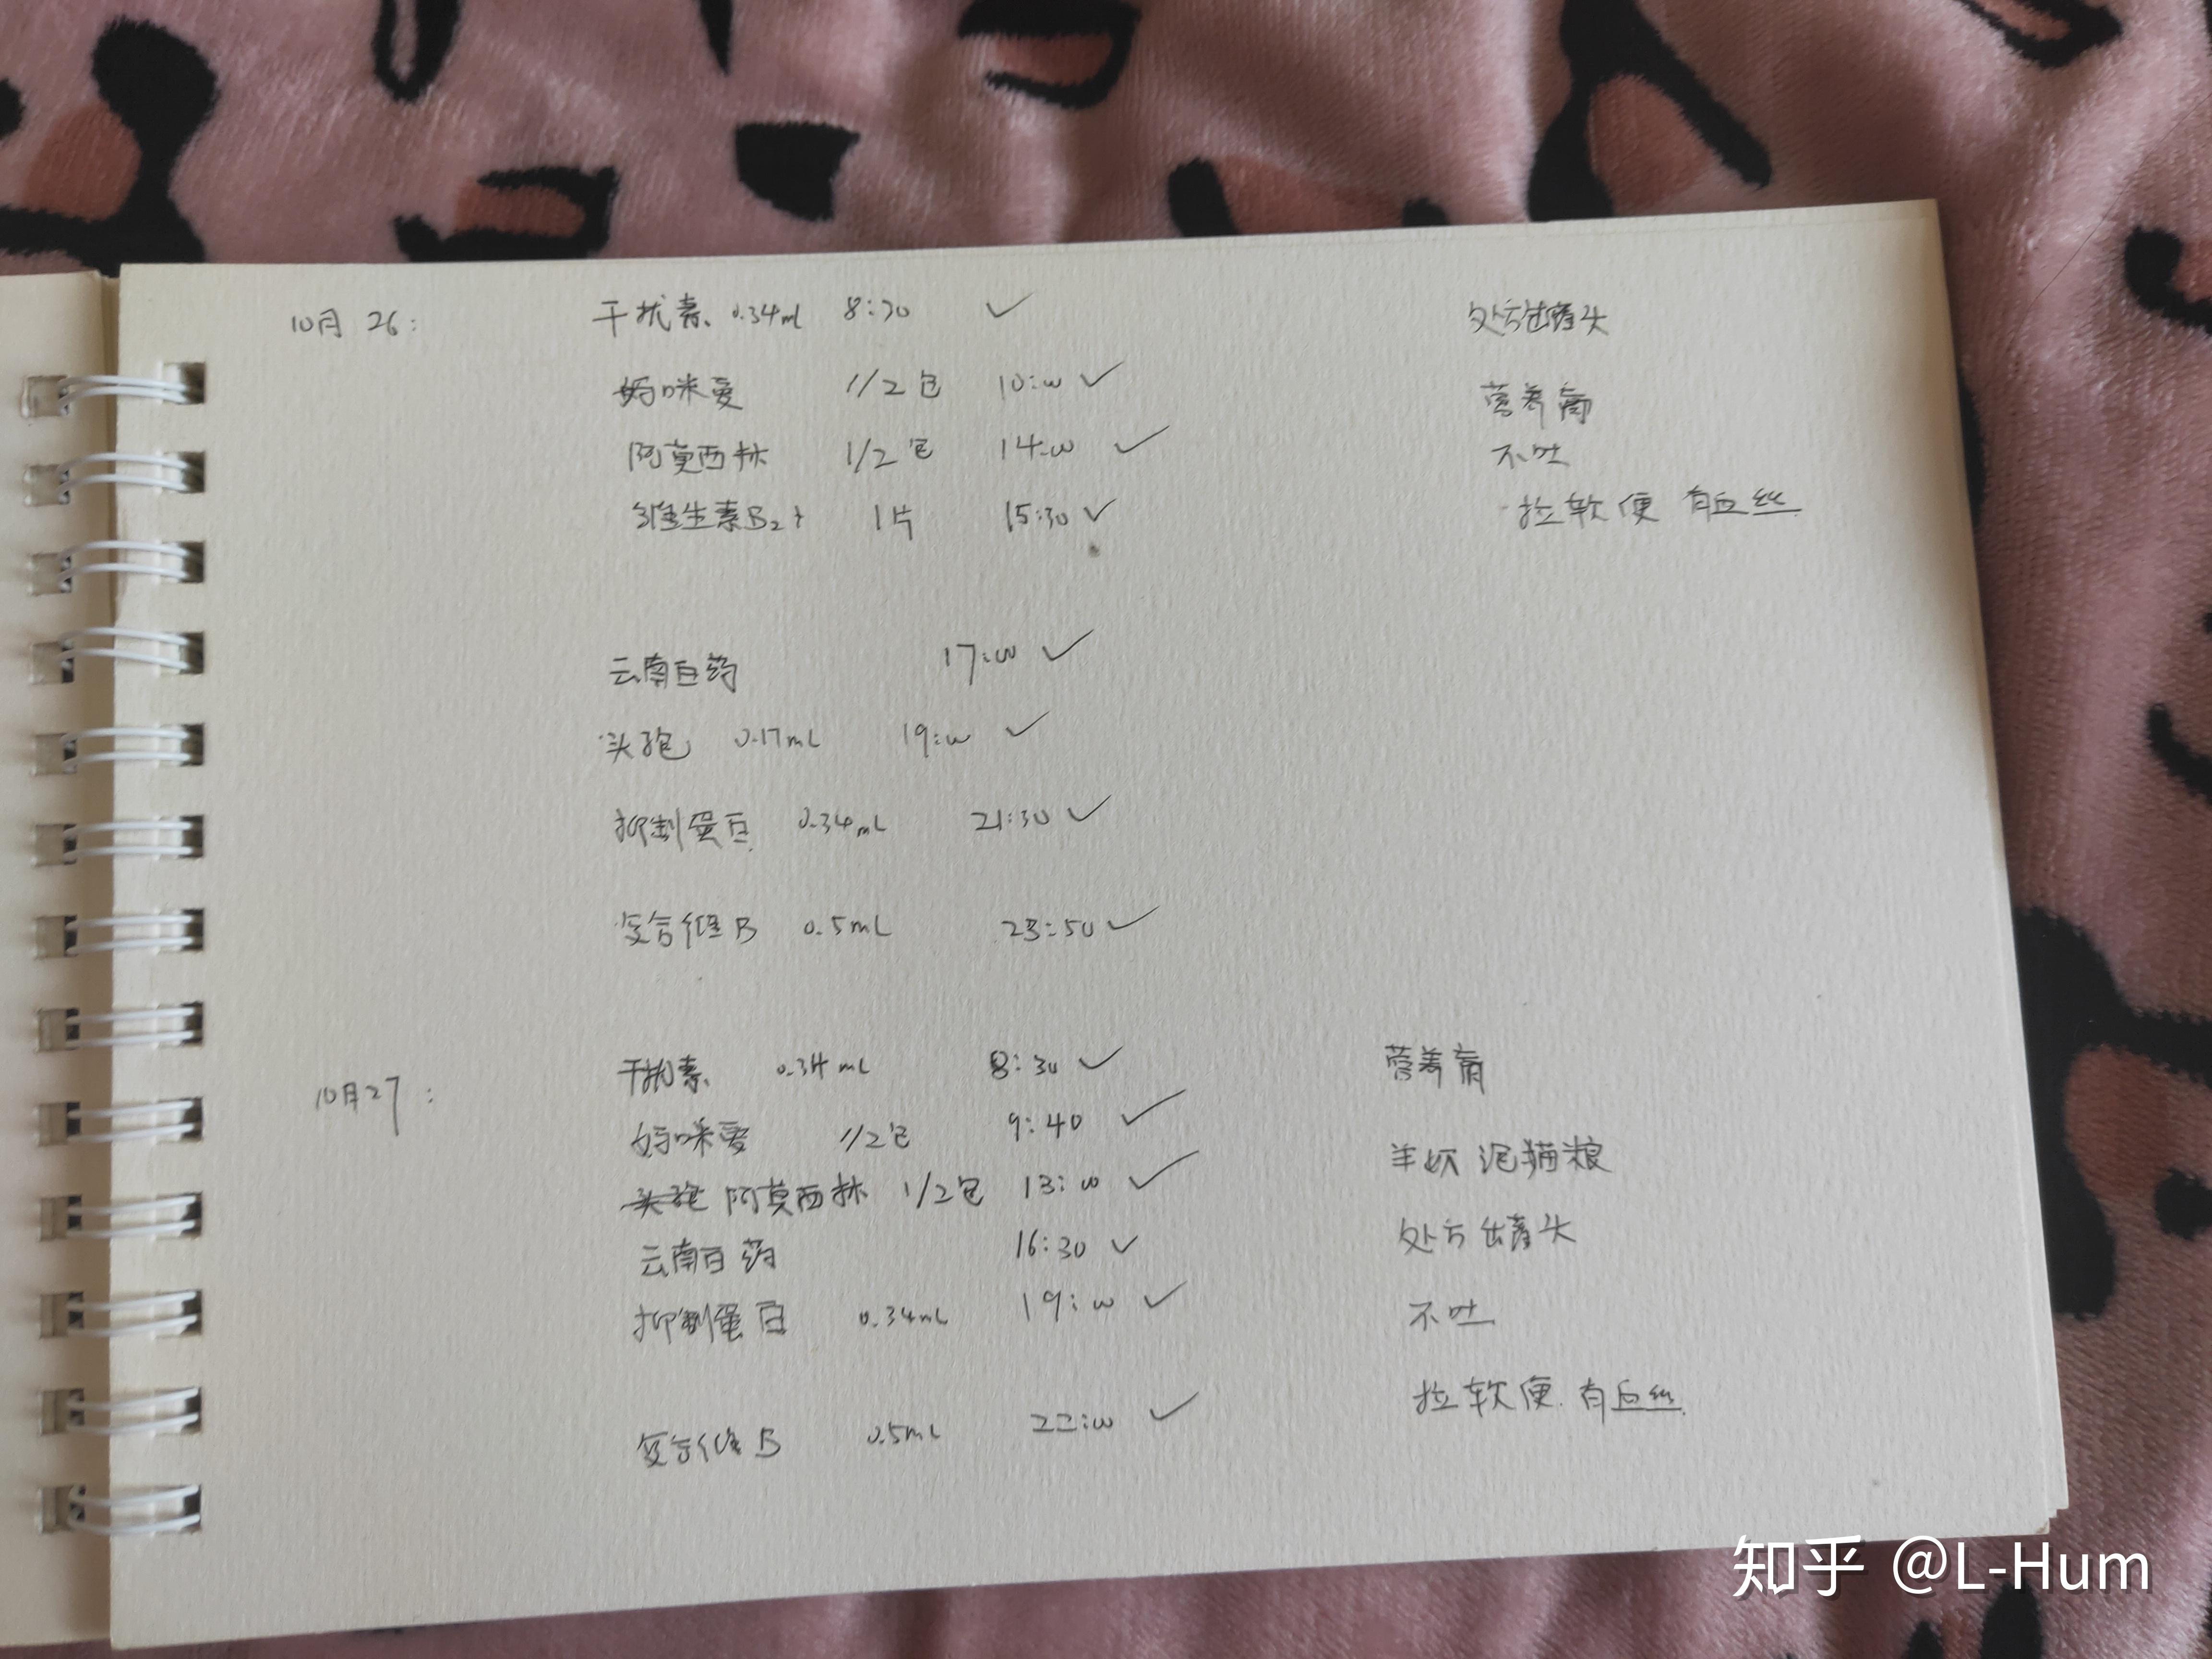 10月26: 干扰素 0.34ml 8:30 ✓ 处方罐头
妈咪爱 1/2包 10:00 ✓ 营养膏
阿莫西林 1/2包 14:00 ✓ 不吐
维生素B₂ 1片 15:30 ✓ 拉软便 有血丝
云南白药 17:00 ✓
头孢 0.17mL 19:00 ✓
抑制蛋白 0.34mL 21:30 ✓
复合维B 0.5mL 23:50 ✓
10月27: 干扰素 0.34mL 8:30 ✓ 营养膏
妈咪爱 1/2包 9:40 ✓ 羊奶 泥猫粮
头孢 阿莫西林 1/2包 13:00 ✓
云南白药 16:30 ✓ 处方罐头
抑制蛋白 0.34mL 19:00 ✓ 不吐
复合维B 0.5mL 22:00 ✓ 拉软便 有血丝
知乎 @L-Hum